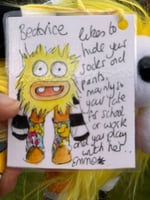 Beatrice
likes to
hide your
socks and
pants,
mainly so
your late
for school
or work
and you play
with her..